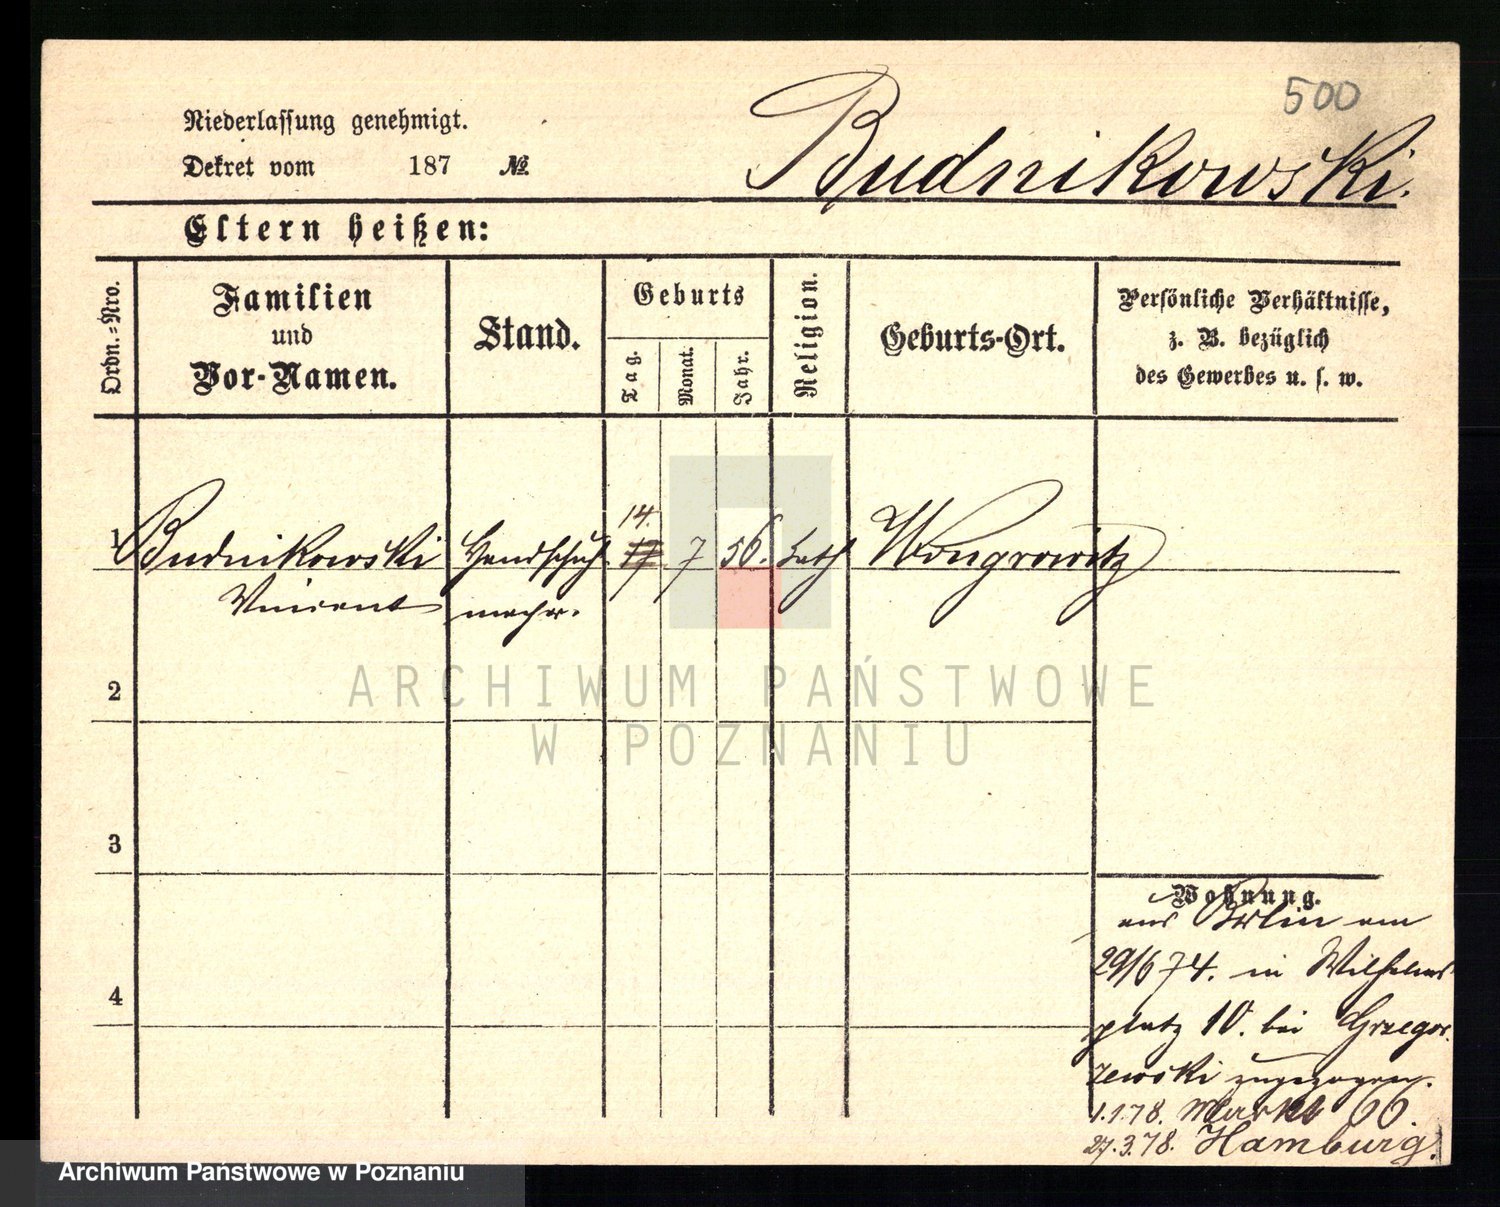 500
Niederlassung genehmigt.
Dekret vom 187 №
Budnikowski.
Eltern heißen:
Ordn.=Nro.
Familien
und
Vor-Namen.
Stand.
Geburts
Tag.
Monat.
Jahr.
Religion.
Geburts-Ort.
Persönliche Verhältnisse,
z. B. bezüglich
des Gewerbes u. s. w.
14.
1 Budnikowski Handschuh- 17 7 56. kath Wongrowitz
Vincent macher.
ARCHIWUM PAŃSTWOWE
W POZNANIU
2
3
4
Wohnung.
aus Berlin am
29/6 74. in Wilhelms
platz 10. bei Grzegor
zewski zugezogen.
1.1.78. Markt 66.
27.3.78. Hamburg.
Archiwum Państwowe w Poznaniu